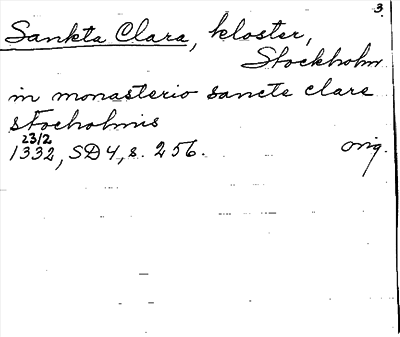 3.
Sankta Clara, kloster,
Stockholm
in monasterio sancte clare
stocholmis
23/2
1332, SD4, s. 256. orig.